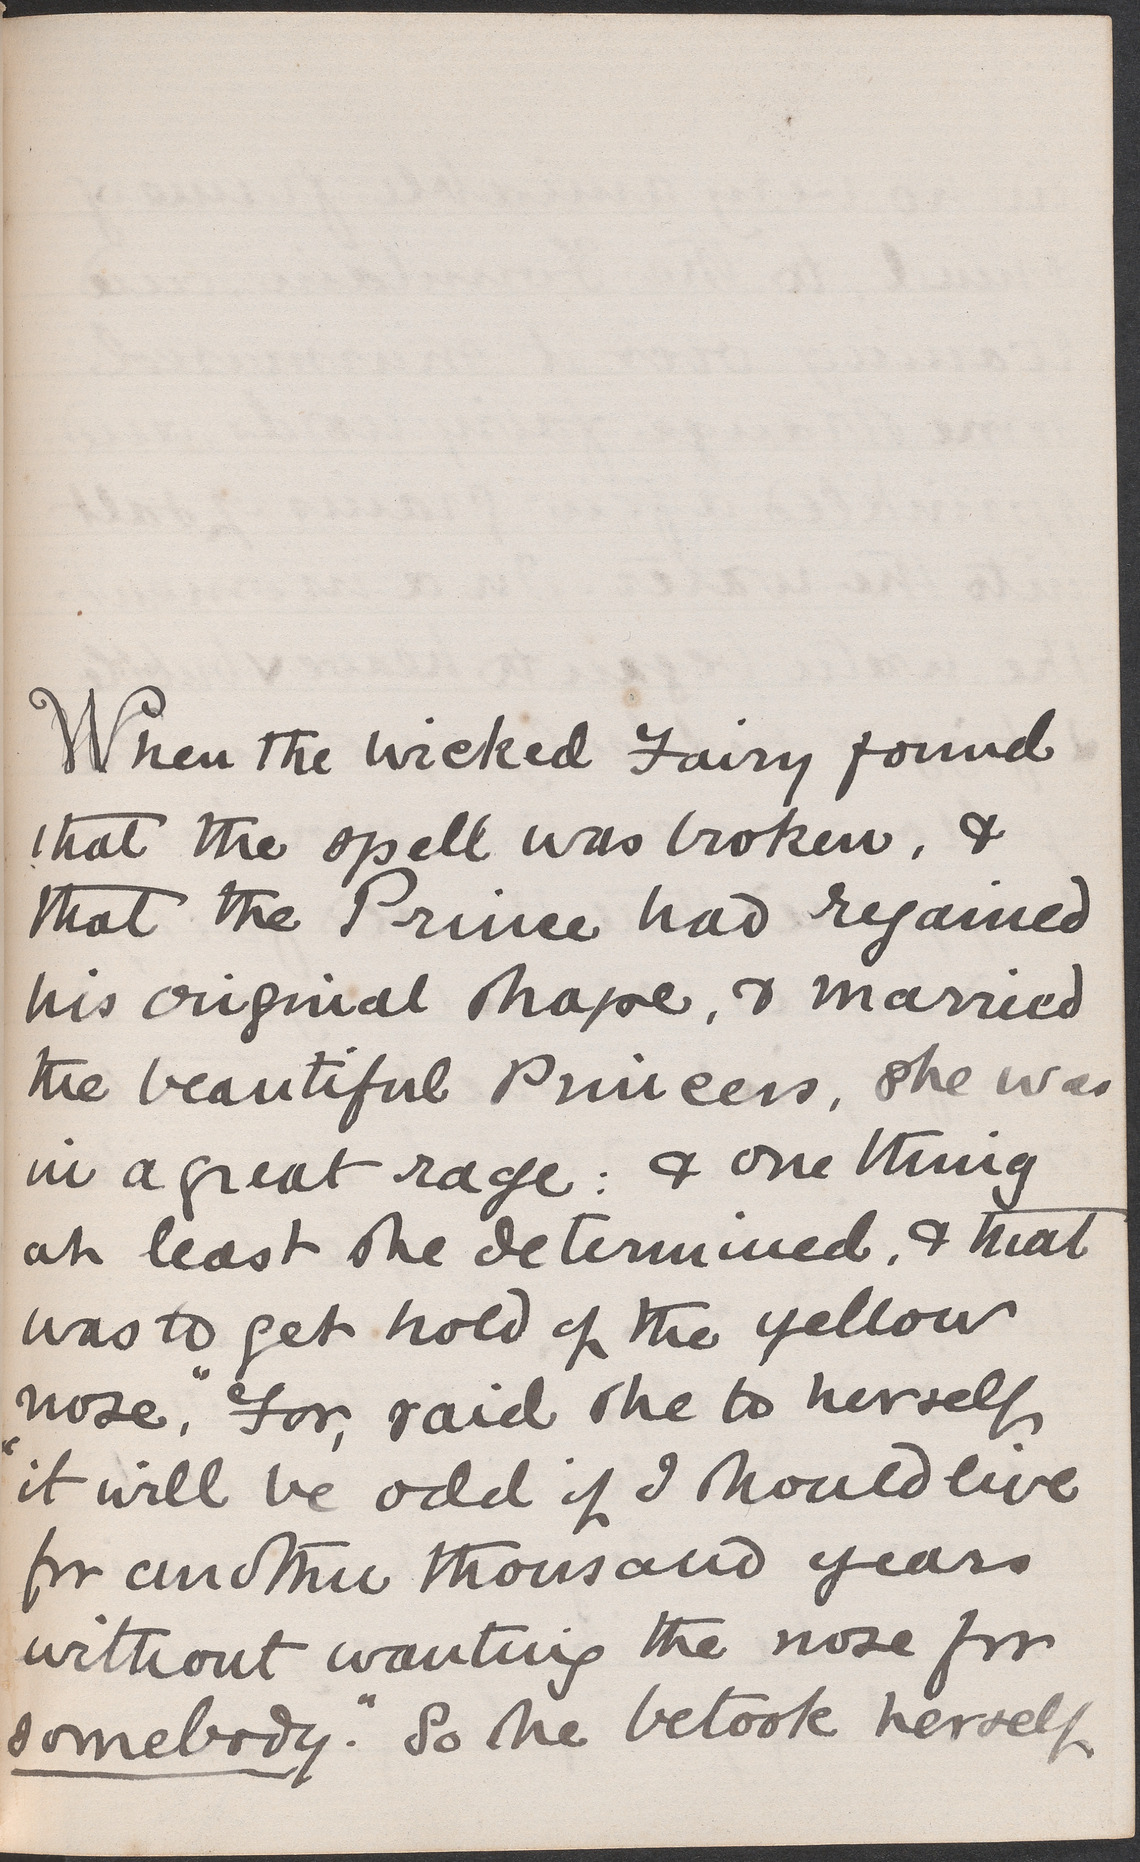 When the wicked Fairy found
that the spell was broken, &
that the Prince had regained
his original shape, & married
the beautiful Princess, she was
in a great rage: & one thing
at least she determined, & that
was to get hold of the yellow
nose, "For, said she to herself
"it will be odd if I should live
for another thousand years
without wanting the nose for
somebody." So she betook herself